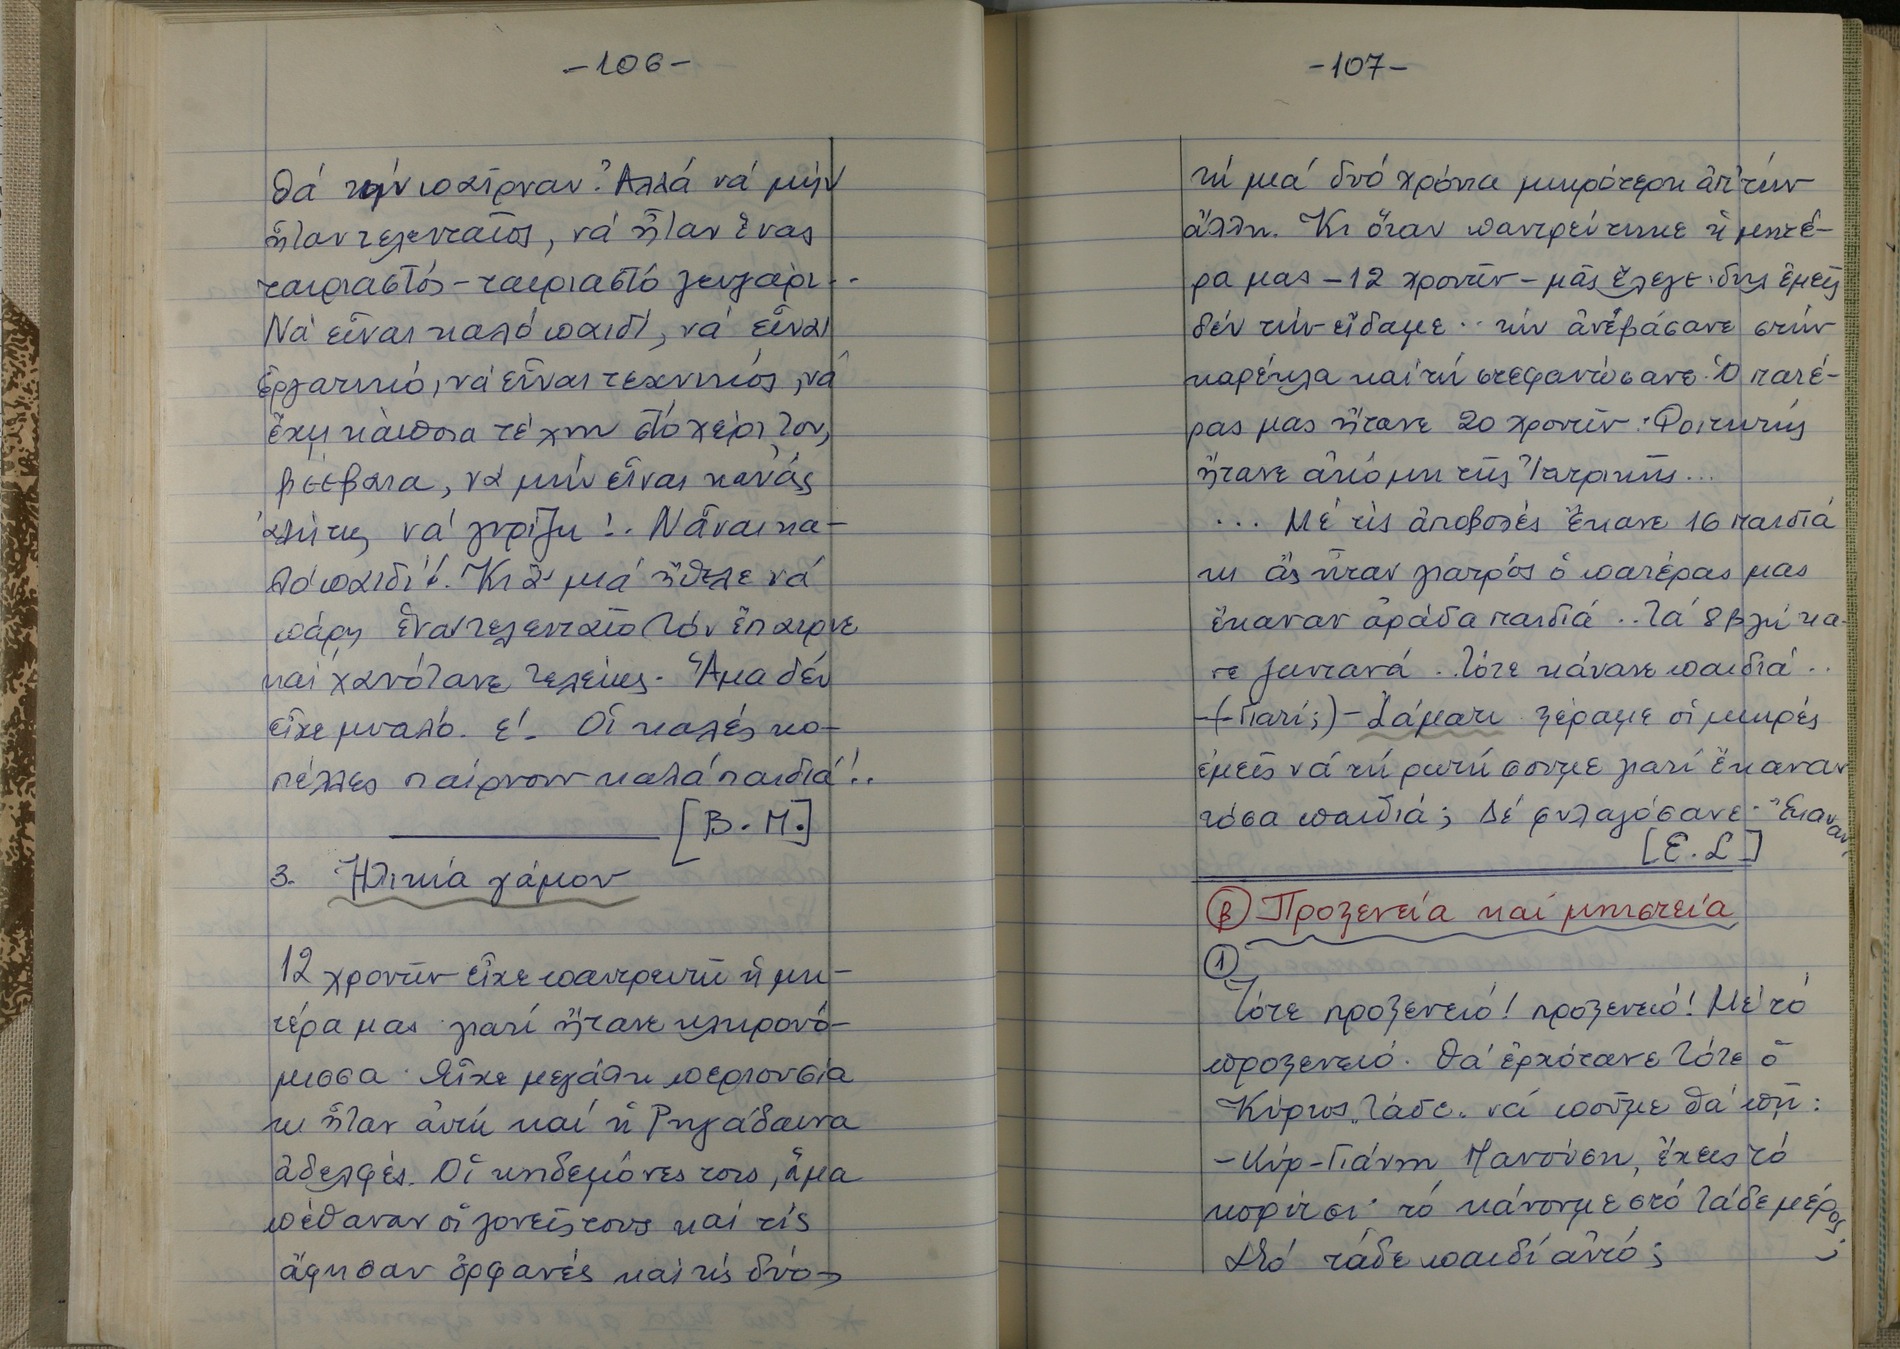 -106-
θά τήν ἐπαίρναν. Ἀλλά νά μήν
ἦταν τελευταῖος, νά ἦταν ἕνας
ταιριαστός - ταιριαστό ζευγάρι..
Νά εἶναι καλό παιδί, νά εἶναι
ἐργατικό, νά εἶναι τεχνικός, νά
ἔχῃ κάποια τέχνη στό χέρι του,
βέβαια, νά μήν εἶναι κανάς
ἀλήτης νά γυρίζῃ!. Νἆναι κα-
λό παιδί!. Κι ἄ μιά ἤθελε νά
πάρῃ ἕναν τελευταῖο τόν ἔπαιρνε
καί χανότανε τελείως. Ἅμα δέν
εἶχε μυαλό. ἔ!. Οἱ καλές κο-
πέλλες παίρνουν καλά παιδιά!..
[Β.Μ.]
3. Ἡλικία γάμου
12 χρονῶν εἶχε παντρευτῆ ἡ μη-
τέρα μας γιατί ἤτανε κληρονό-
μισσα. Εἶχε μεγάλη περιουσία
κι ἦταν αὐτή καί ἡ Ρηγάδαινα
ἀδελφές. Οἱ κηδεμόνες τους, ἅμα
πέθαναν οἱ γονεῖς τους καί τίς
ἄφησαν ὀρφανές καί τίς δυό→
-107-
τή μιά δυό χρόνια μικρότερη ἀπ' τήν
ἄλλη. Κι ὅταν παντρεύτηκε ἡ μητέ-
ρα μας - 12 χρονῶν - μᾶς ἔλεγε. δῆς ἐμεῖς
δέν τήν εἴδαμε.. τήν ἀνεβάσανε στήν
καρέκλα καί τή στεφανώσανε. Ὁ πατέ-
ρας μας ἤτανε 20 χρονῶν. Φοιτητής
ἤτανε ἀκόμη τῆς Ἰατρικῆς...
... Μέ τίς ἀποβολές ἔκανε 16 παιδιά
κι ἄς ἦταν γιατρός ὁ πατέρας μας
ἔκαναν ἀράδα παιδιά.. Τά 8 βγήκα-
νε ζωντανά. Τότε κάνανε παιδιά..
-(-Γιατί;)- Σάματι ξέραμε οἱ μικρές
ἐμεῖς νά τή ρωτήσουμε γιατί ἔκαναν
τόσα παιδιά; Δέ φυλαγόσανε. Ἔκαναν.
[Ε.Σ.]
Β Προξενεία καί μνηστεία
1
Τότε προξενειό! προξενειό! Μέ τό
προξενειό. Θά ἐρχότανε τότε ὁ
Κύριος τάδε. νά ποῦμε θά πῇ:
-Κύρ-Γιάννη Μανούση, ἔχεις τό
κορίτσι. τό κάνουμε στό τάδε μέρος;
Στό τάδε παιδί αὐτό;